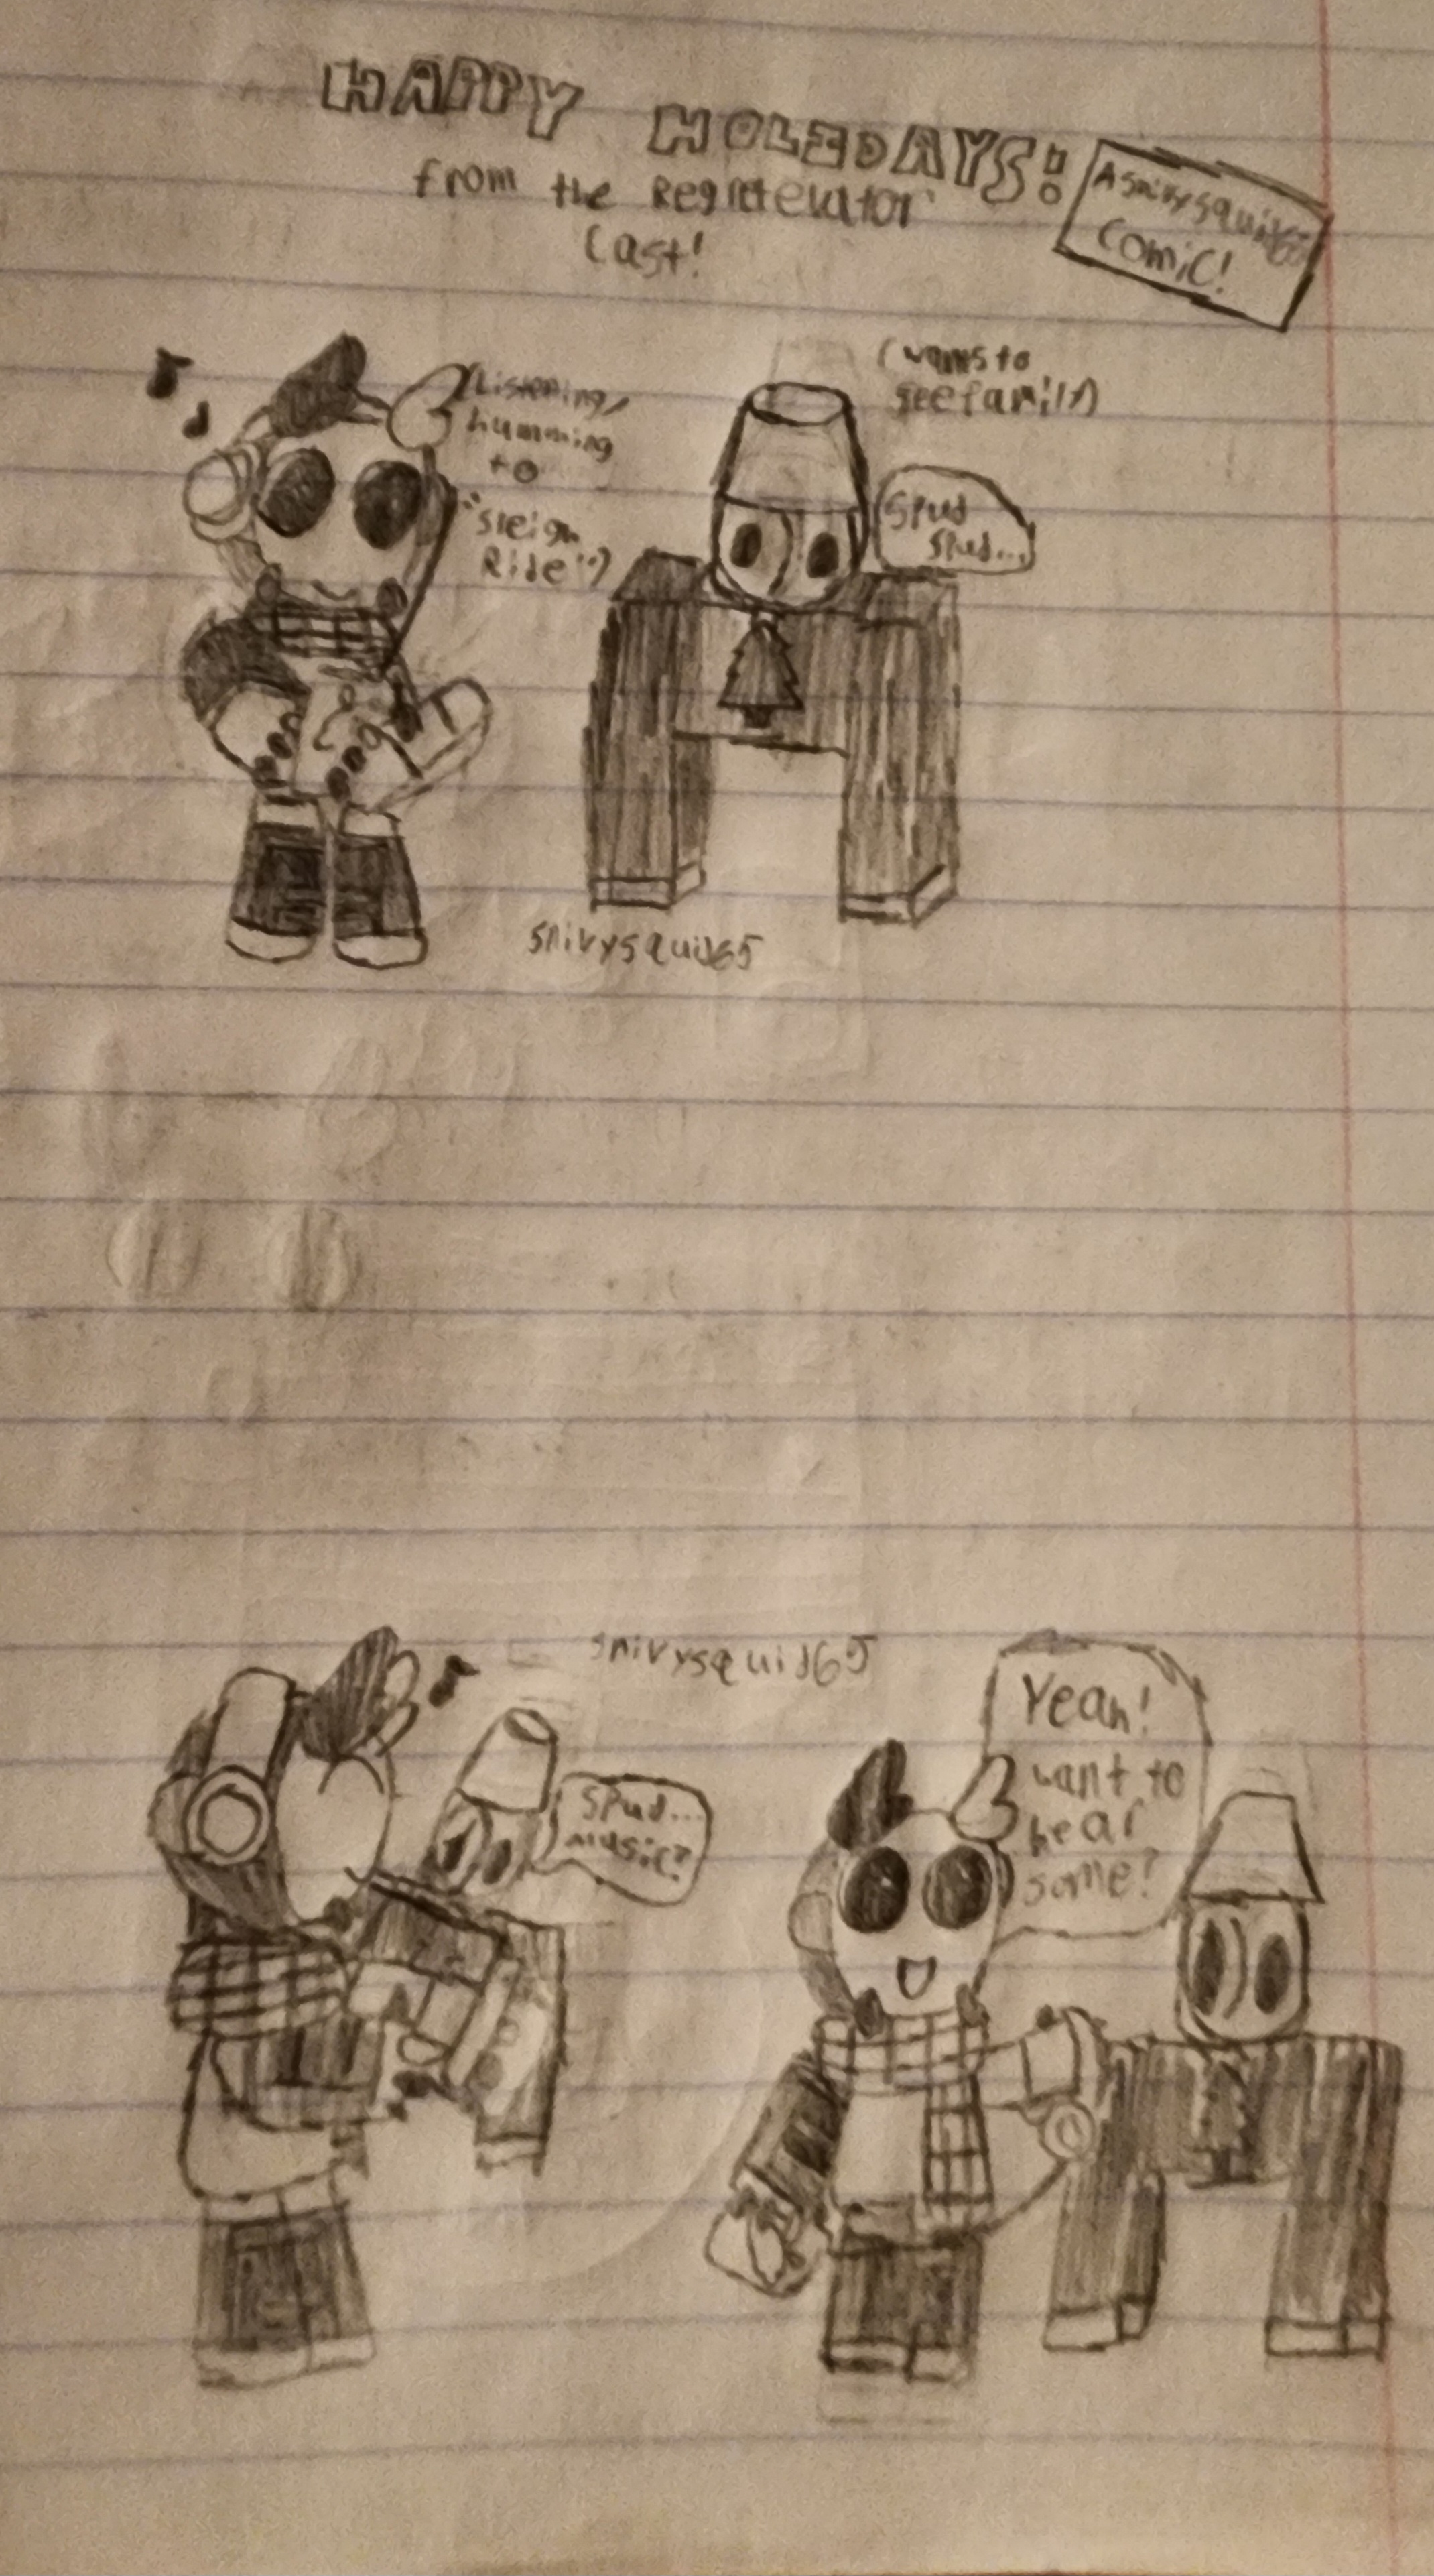 HAPPY HOLEDAYS!
from the Regretevator
Cast!
A snivysquid65
comic!
(Listening/
humming
to
"Sleigh
Ride")
(wants to
see family)
Spud
Spud...
snivysquid65
snivysquid65
Spud...
music?
Yeah!
want to
hear
some?